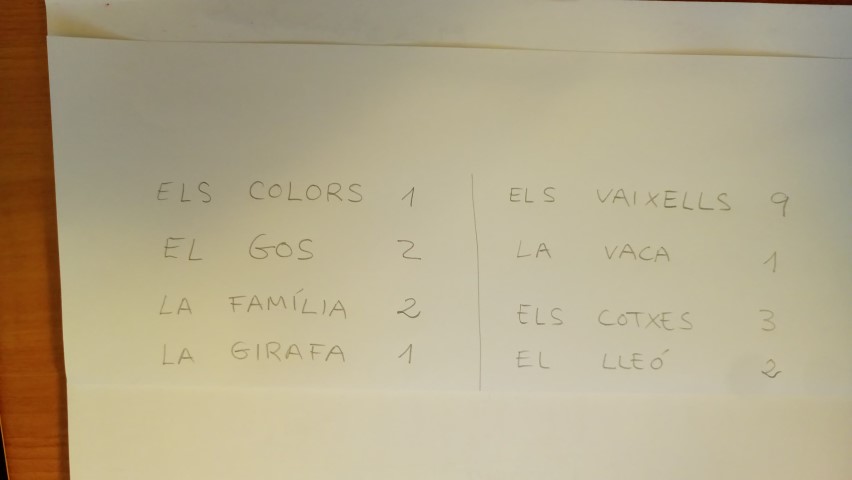 ELS COLORS 1
EL GOS 2
LA FAMÍLIA 2
LA GIRAFA 1
ELS VAIXELLS 9
LA VACA 1
ELS COTXES 3
EL LLEÓ 2